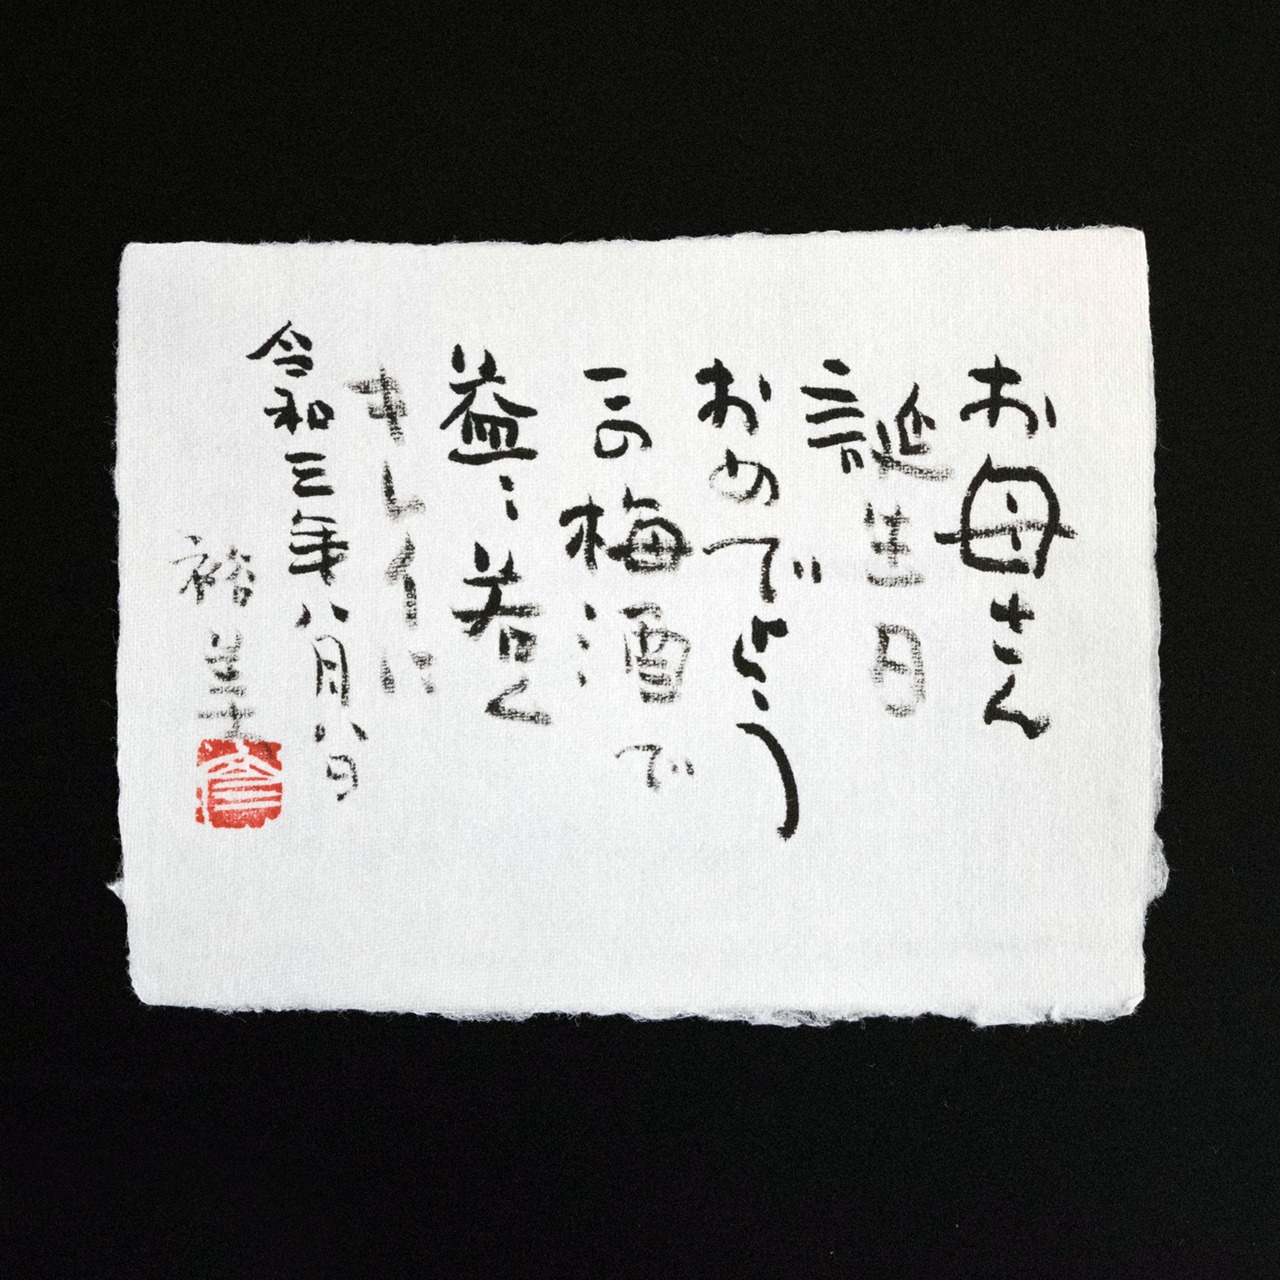 お母さん
誕生日
おめでとう
この梅酒で
益々若く
キレイに
令和三年八月八日
裕美